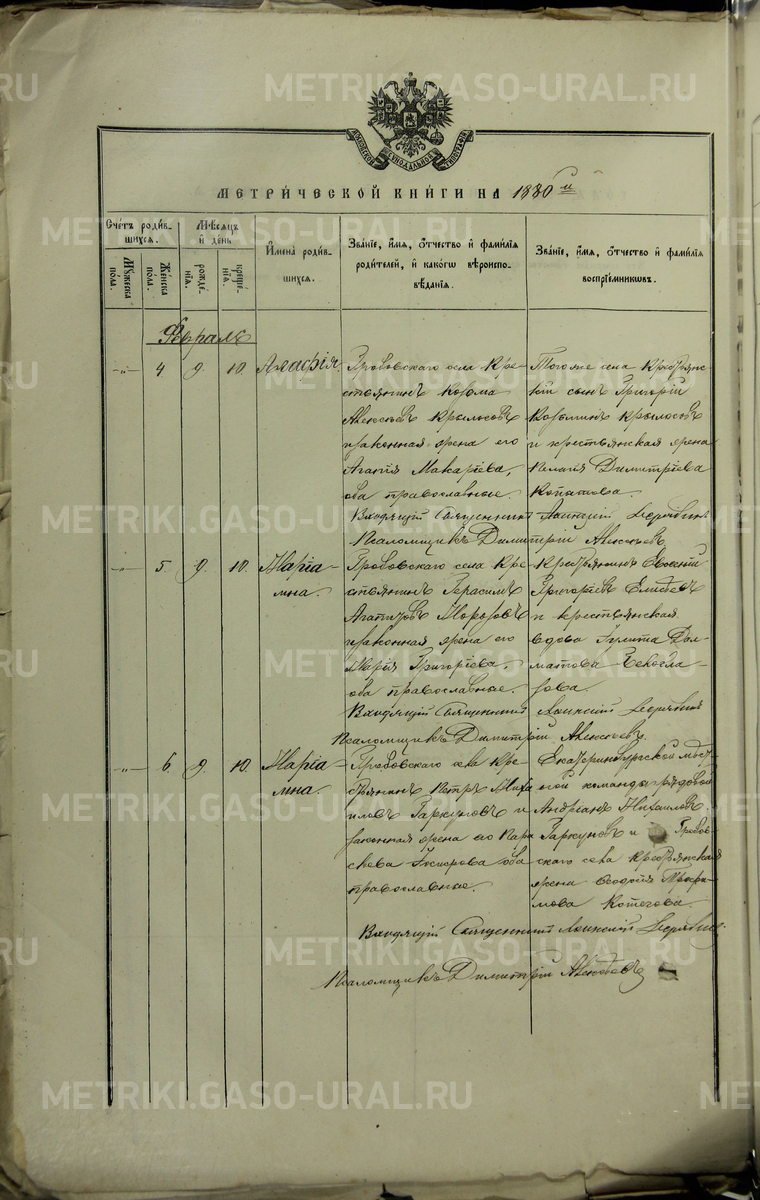 METRIKI.GASO-URAL.RU
МОСКОВСКОЙ СѴНОДАЛЬНОЙ ТИПОГРАФІИ
МЕТРИ́ЧЕСКОЙ КНИ́ГИ НА 1880 й
Сче́тъ роди́в-
шихся.
Мꙋ́жеска пола.
Же́нска пола.
Мѣ́сяцъ
и̂ день
рожде́-
нія.
креще́-
нія.
И̂мена̀ роди́в-
шихся.
Зва́ніе, и̂́мя, о̂́тчество и̂ фами́лія
роди́телей, и̂ како́гѡ вѣроиспо-
вѣ́данія.
Зва́ніе, и̂́мя, о̂́тчество и̂ фами́лія
воспрїе́мникѡвъ.
Февраль
-„- 4 9. 10. Агафія.
Грововскаго села Кре-
стьянинъ Козма
Алексѣевъ Крылосовъ
и законная жена его
Агапія Макаріева,
оба православные.
Тогоже села Крестьянс-
кій сынъ Григорій
Козьминъ Крылосовъ
и крестьянская жена
Пелагія Димитріева
Копатова.
Входящій Священникъ
Псаломщикъ Димитрій Алексѣевъ
-„- 5. 9. 10. Маріа-
мна.
Грововскаго села Кре-
стьянинъ Герасимъ
Агапитовъ Морозовъ
и законная жена его
Марія Григоріева.
оба православные.
Крестьянинъ Евсевій
Григорьевъ Елисеевъ
и крестьянская
вдова Іулита Дал-
матова
Входящій Священникъ
Псаломщикъ Димитрій Алексѣевъ
-„- 6. 9. 10. Маріа-
мна.
Грововскаго села Кре-
стьянинъ Петръ Миха
иловъ Гаркуновъ и
законная жена его Пара
скева оба
православные.
Екатеринбургской мѣст-
ной команды рядовой
Андріанъ Михаиловъ
Гаркуновъ и Гровов-
скаго села крестьянская
жена Ѳеодосія Трофи-
мова Котегова.
Входящій Священникъ
Псаломщикъ Димитрій Алексѣевъ